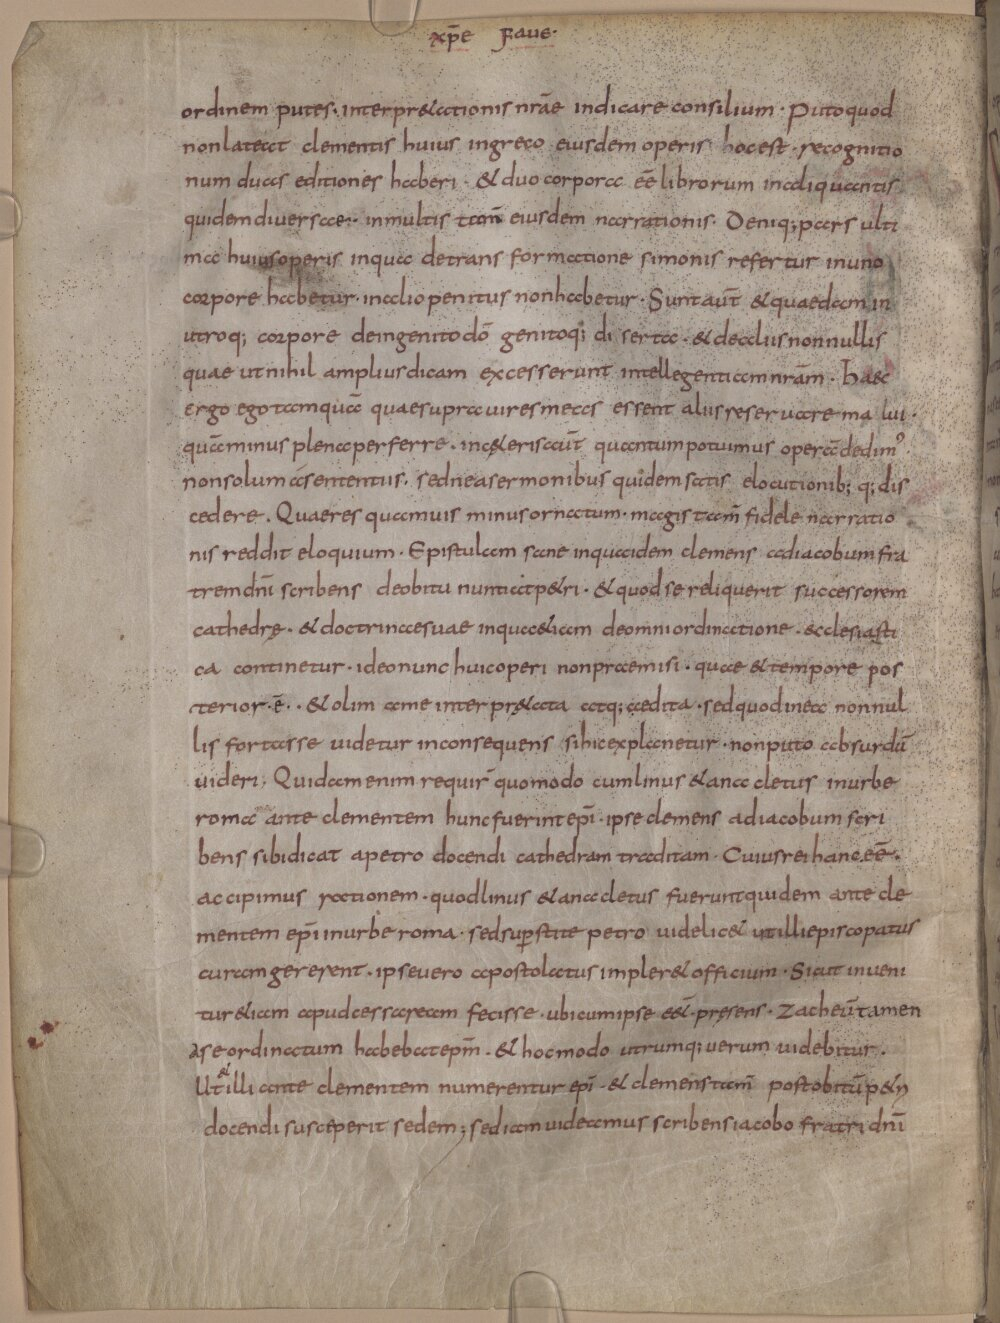 xp̄e faue·
ordinem putes· interpr&ationis nrāe indicare consilium · Puto quod
non lateat clementis huius in greco eiusdem operis hoc est · recognitio
num duas editiones haberi · & duo corpora eē librorum in aliquantis
quidem diversae· in multis tam̄ eiusdem narrationis· Deniq; pars ulti
ma huius operis in qua de transformatione simonis refertur in uno
corpore habetur· in alio penitus non habetur· Sunt aut̄ & quaedam in
utroq; corpore de ingenito dō genitoq; di serta · & de aliis nonnullis
quae ut nihil amplius dicam excesserunt intellegentiam nrām · Haec
ergo ego tamquā quae supra uires meas essent aliis reseruare ma lui·
quā minus plena perferre · in c&eris aut̄ quantum potuimus operā dedim⁹
non solum a sententiis· sed ne a sermonibus quidem satis elocutionib; q; dis
cedere. Quae res quamuis minus ornatum· magis tam̄ fidele narratio
nis reddit eloquium · Epistulam sane in qua idem clemens ad iacobum fra
trem dn̄i scribens de obitu nuntiat p&ri · & quod se reliquerit successorem
cathedrę · & doctrinae suae in qua &iam de omni ordinatione · ecclesiasti
ca continetur · ideo nunc huic operi non praemisi · quae & tempore pos
terior·ē·· & olim a me interpr&ata atq; ędita · sed quod in ea nonnul
lis fortasse uidetur inconsequens si hic explanetur · non puto absurdū
uideri, Quidam enim requir̄ quomodo cum linus & ana cletus in urbe
roma ante clementem hunc fuerint epī · ipse clemens ad iacobum scri
bens sibi dicat a petro docendi cathedram traditam · Cuius rei hanc eē·
accipimus rationem · quod linus & anacletus fuerunt quidem ante cle
mentem epī in urbe roma · sed sup̄stite petro uidelic& ut illi episcopatus
curam gererent · ipse uero apostolatus impler& officium · Sicut inueni
tur &iam apud cessaream fecisse · ubi cum ipse eē&·pręsens· Zacheū tamen
a se ordinatum habebat ep̄m · & hoc modo utrumq; uerum uidebitur·
Ut & illi ante clementem numerentur epī · & clemens tam̄ post obitū p&ri
docendi susceperit sedem; sed iam uideamus scribens iacobo fratri dn̄i